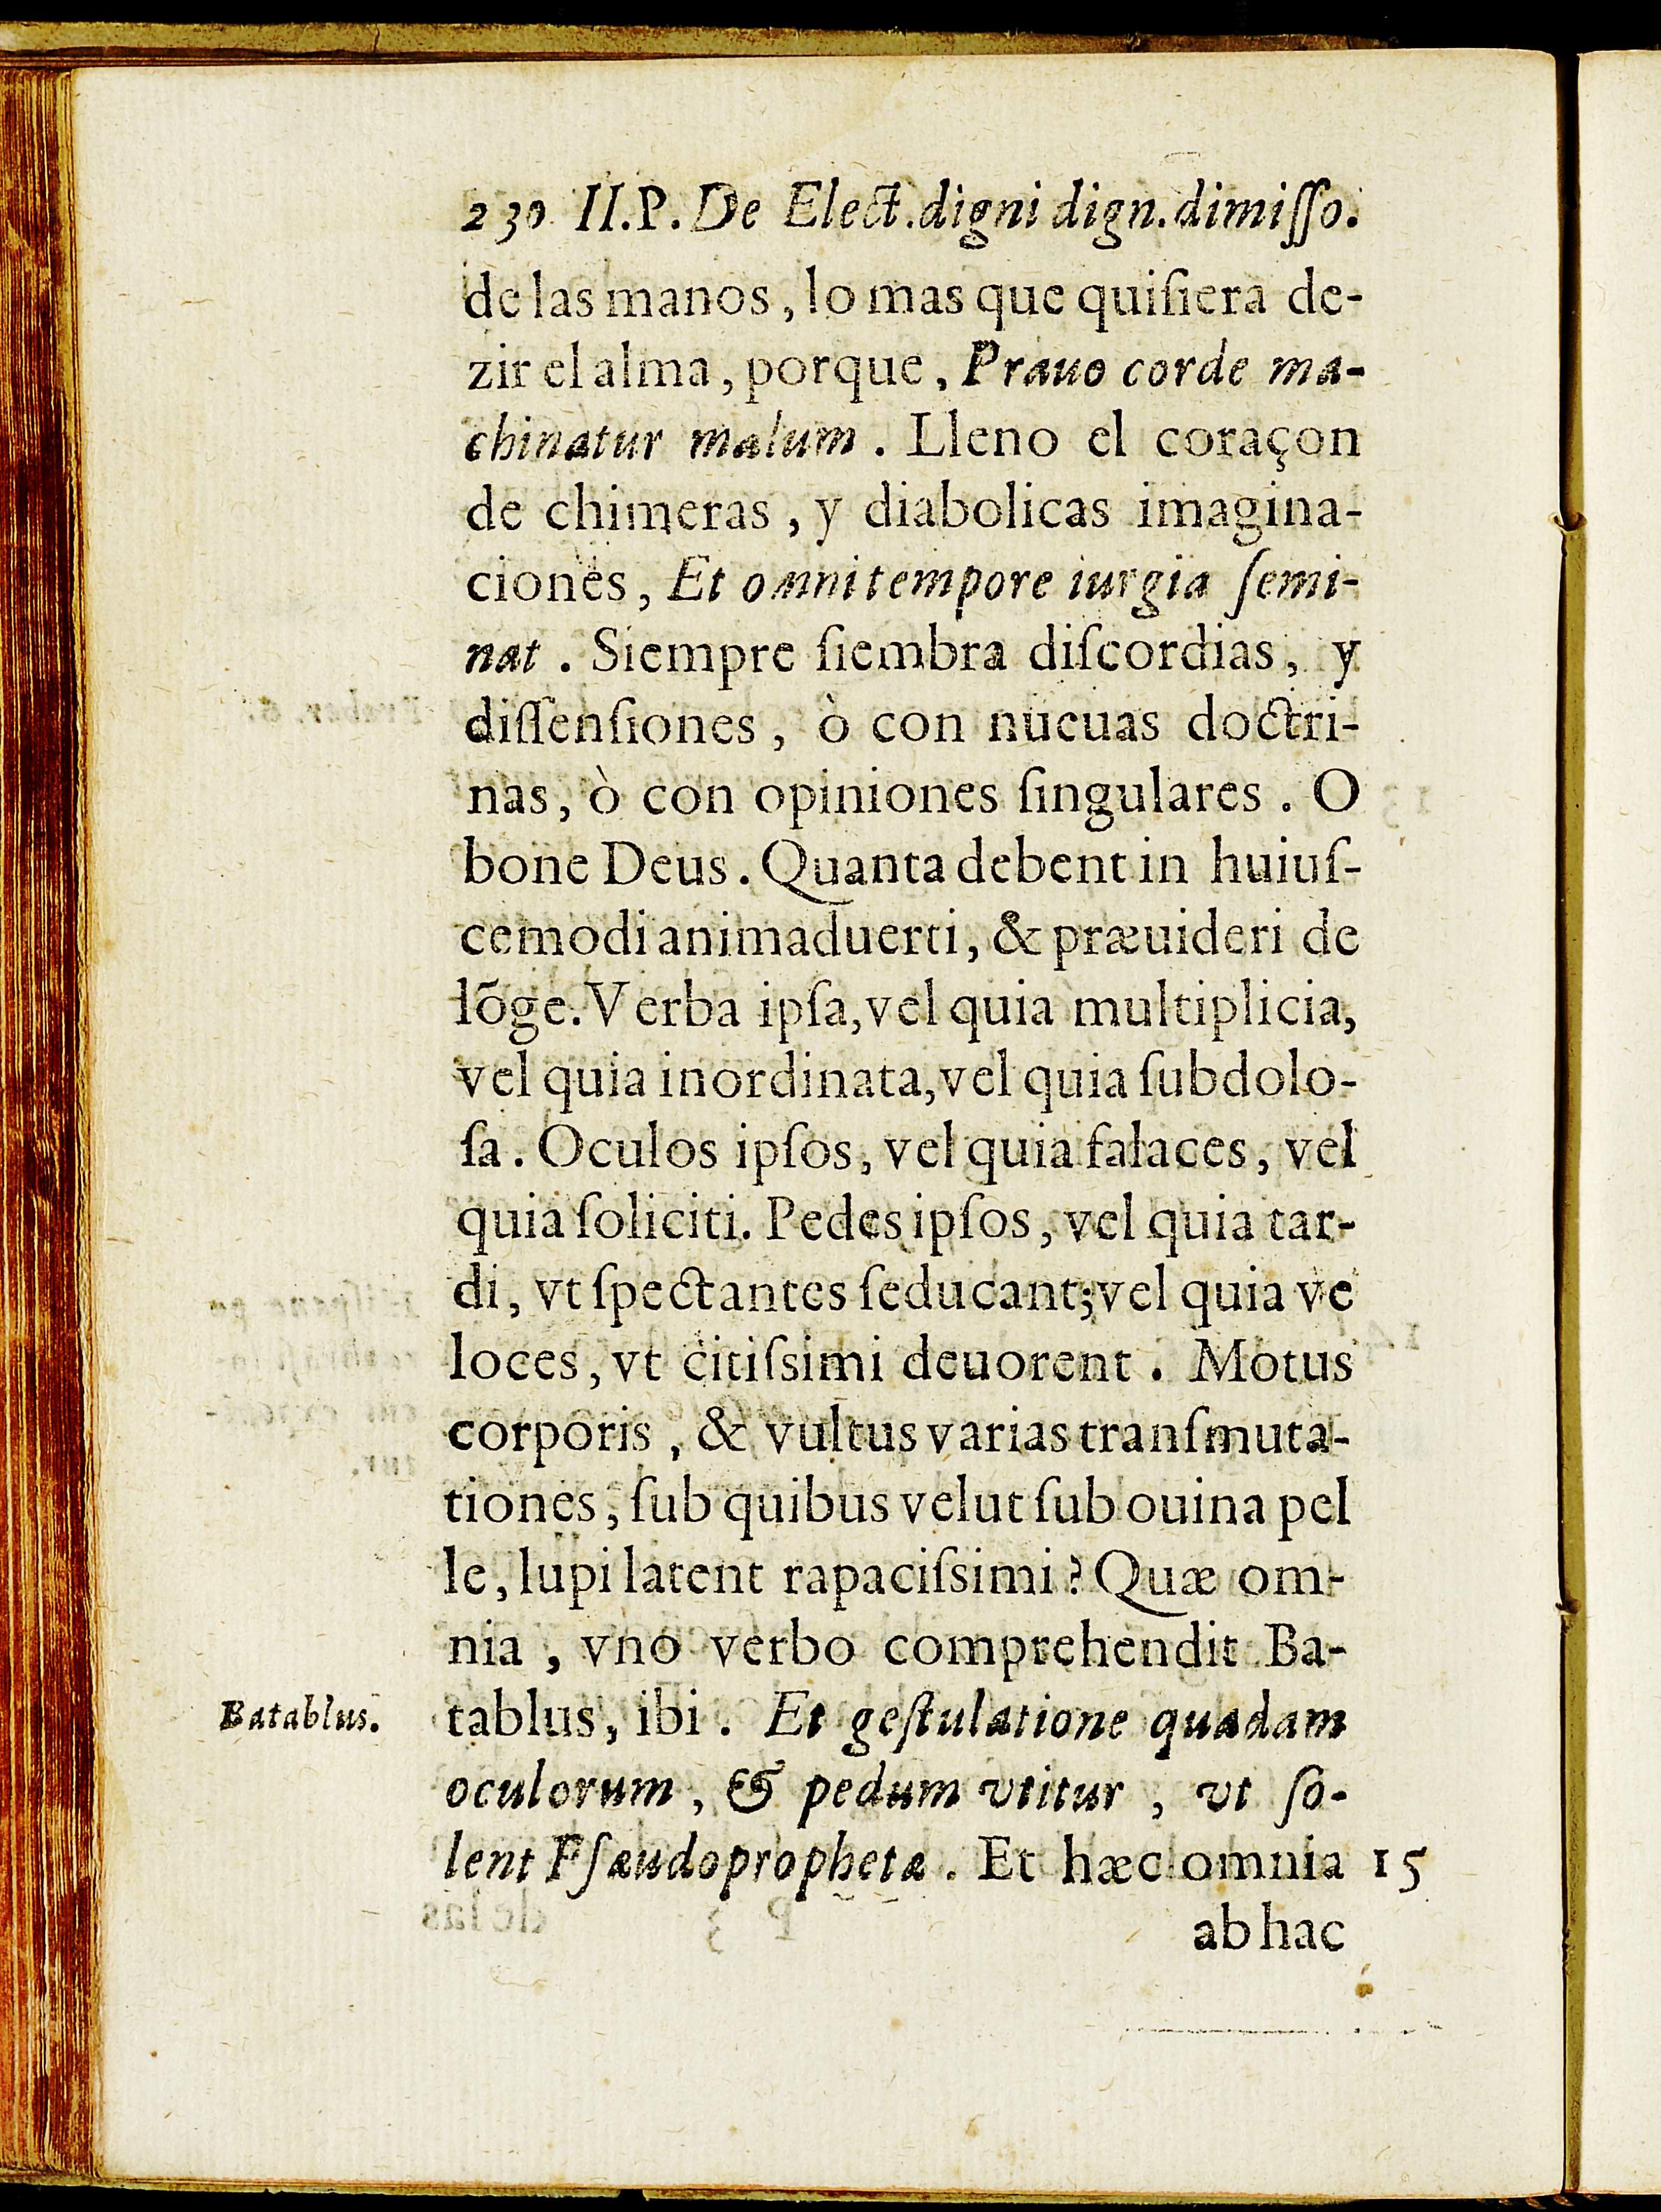 230 II.P. De Elect.digni dign.dimiſſo.
de las manos, lo mas que quiſiera de-
zir el alma, porque, Prauo corde ma-
chinatur malum. Lleno el coraçon
de chimeras, y diabolicas imagina-
ciones, Et omni tempore iurgia ſemi-
nat. Siempre ſiembra diſcordias, y
diſſenſiones, ò con nueuas doctri-
nas, ò con opiniones ſingulares. O
bone Deus. Quanta debent in huiuſ-
cemodi animaduerti, & præuideri de
lõge. Verba ipſa, vel quia multiplicia,
vel quia inordinata, vel quia ſubdolo-
ſa. Oculos ipſos, vel quia falaces, vel
quia ſoliciti. Pedes ipſos, vel quia tar-
di, vt ſpectantes ſeducant; vel quia ve
loces, vt citiſsimi deuorent. Motus
corporis, & vultus varias tranſmuta-
tiones, ſub quibus velut ſub ouina pel
le, lupi latent rapaciſsimi? Quæ om-
nia, vno verbo comprehendit Ba-
Batablus.
tablus, ibi. Et geſtulatione quadam
oculorum, & pedum vtitur, vt ſo-
lent Pſæudoprophetæ. Et hæc omnia 15
ab hac